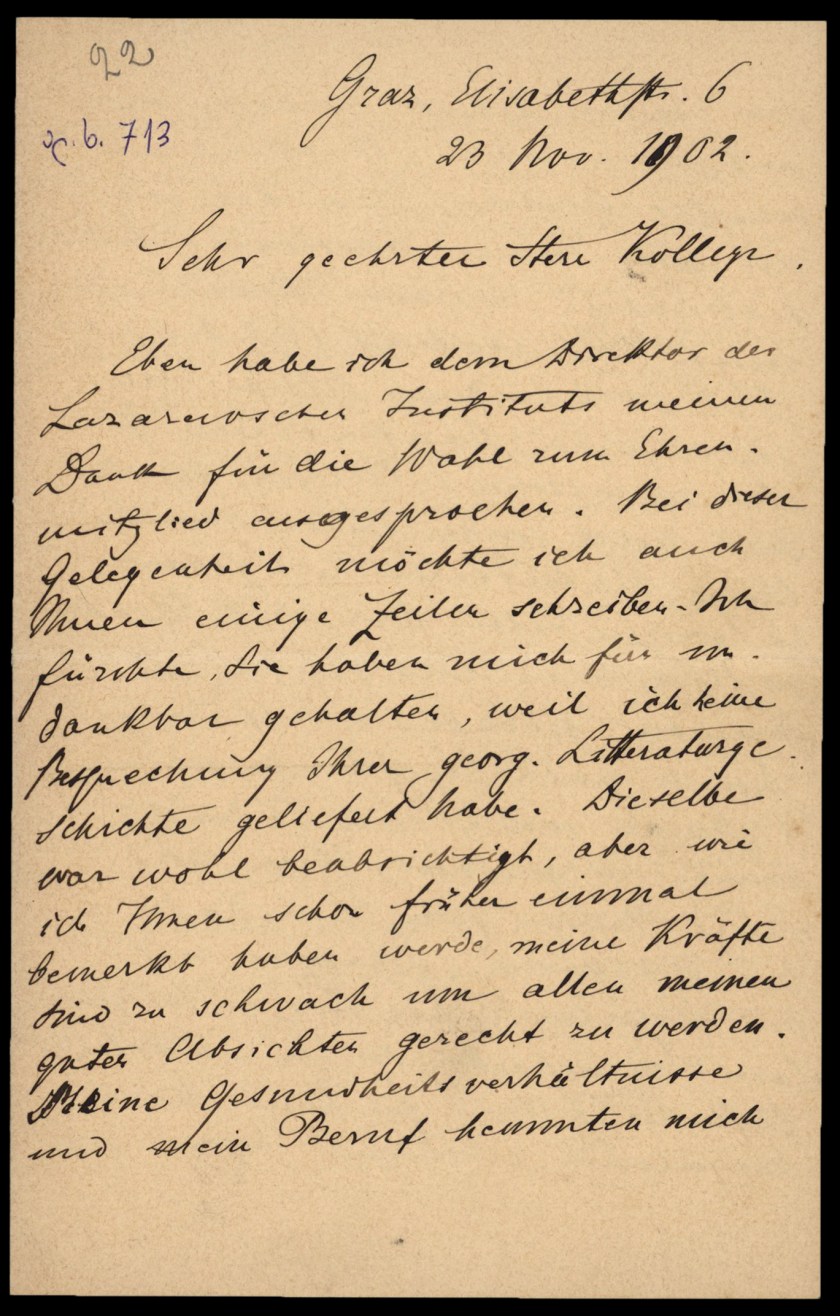 22
b. 713
Graz, Elisabethstr. 6
23 Nov. 1902.
Sehr geehrter Herr Kollege,
Eben habe ich dem Direktor des
Lazarewschen Instituts meinen
Dank für die Wahl zum Ehren-
mitglied ausgesprochen. Bei dieser
Gelegenheit möchte ich auch
Ihnen einige Zeilen schreiben. Ich
fürchte, Sie haben mich für un-
dankbar gehalten, weil ich keine
Besprechung Ihrer georg. Litteraturge-
schichte geliefert habe. Dieselbe
war wohl beabsichtigt, aber wie
ich Ihnen schon früher einmal
bemerkt haben werde, meine Kräfte
sind zu schwach um allen meinen
guten Absichten gerecht zu werden.
Meine Gesundheitsverhältnisse
und mein Beruf hemmten mich